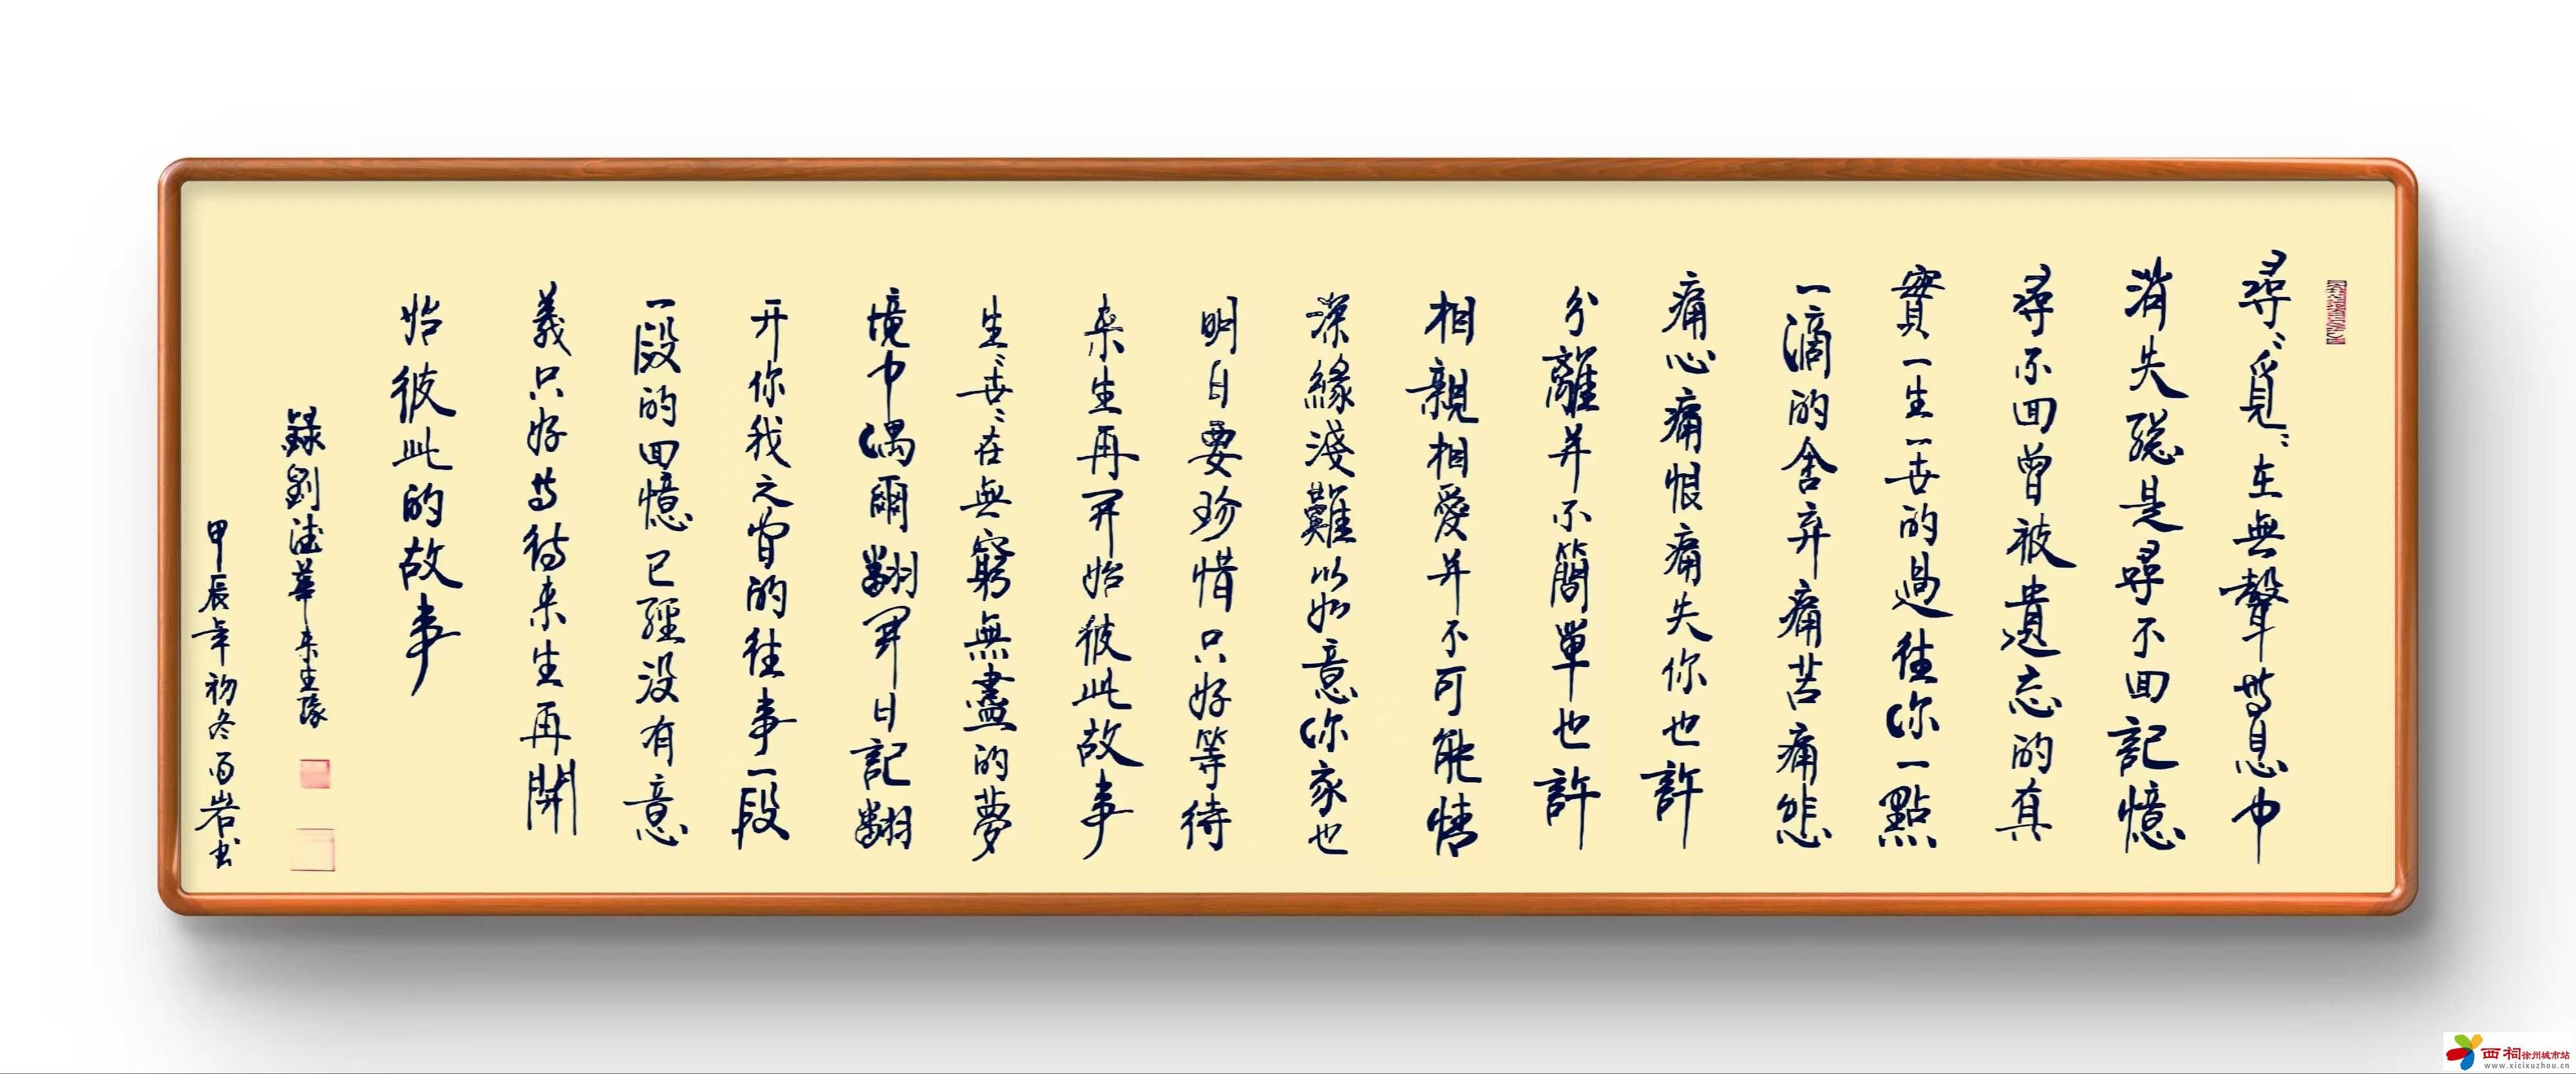 尋〻覓〻在無聲無息中
消失總是尋不回記憶
尋不回曾被遺忘的真
實一生一世的過往你一點
一滴的舍弃痛苦痛悲
痛心痛恨痛失你也許
分離并不簡單也許
相親相愛并不可能情
深緣淺難以如意你我也
明白要珍惜只好等待
来生再開始彼此故事
生〻世〻在無窮無盡的夢
境中偶爾翻開日記翻
开你我之曾的往事一段
一段的回憶已經没有意
義只好等待来生再開
始彼此的故事
錄劉德華来生緣
甲辰年初冬雨岩书
西祠徐州城市站
www.xicixuzhou.cn